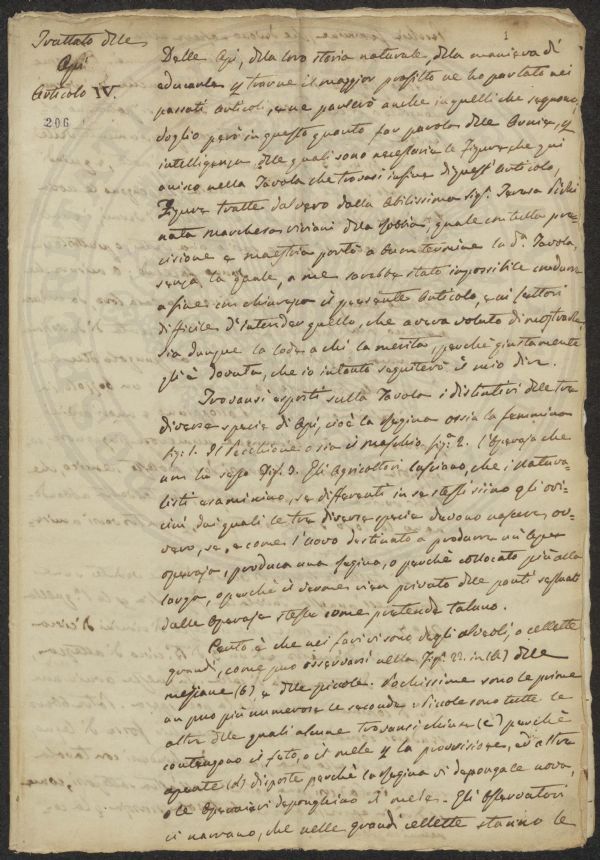 1
Trattato delle
Api
Articolo IV.
206
Delle Api, della loro storia naturale, della maniera di
educarle, e trarne il maggior profitto ve ho parlato nei
passati Articoli, e ne parlerò anche in quelli che seguono,
voglio però in questo quanto far parola delle Arnie, p
intelligenza delle quali sono necessarie le Figure che qui
unisco nella Tavola che trovasi in fine di quest'Articolo,
Figure tratte dal vero dalla Abilissima Sig.ª Teresa
nata Marchesa Viviani della Robbia, quale con tutta pre
cisione e maestria portò a buon termine la dª. Tavola
senza la quale, a me sarebbe stato impossibile condurre
a fine con chiarezza il presente Articolo, e ai Lettori
difficile d'intender quello, che aveva voluto dimostrarle.
Sia dunque la lode a chi la merita, perchè giustamente
gli è dovuta, che io intanto seguiterò il mio dire.
Trovansi esposti sulla Tavola i distintivi delle tre
diverse specie di Api, cioè la Regina ossia la femmina
fig: 1. Il Pecchione ossia il maschio fig.ª 2. l'Operaja che
non ha sesso Fig. 3. Gli Agricoltori lasciano, che i Natura-
listi esaminino, se differenti in se stessi siino gli ovi-
cini, dai quali le tre diverse specie devono nascere, ov-
vero, se, e come l'uovo destinato a produrre un'Ape
operaja, produca una Regina, o perchè collocato più alla
larga, o perchè il verme vien privato delle parti sessuali
dalle Operaje stesse come pretende taluno.
Certo è che nei favi vi sono degli alveoli, o cellette
grandi, come può osservarsi nella Fig.ª 22. in (a) delle
mezzane (b) e delle piccole. Pochissime sono le prime
un può più numerose le seconde: Piccole sono tutte le
altre delle quali alcune trovansi chiuse (c) perchè
contengono il feto, o il mele p la provvisione, ed altre
aperte (d) disposte perchè la Regina vi deponga le uova,
o le Operaie vi deponghino il mele. Gli Osservatori
ci narrano, che nelle grandi cellette stanno le